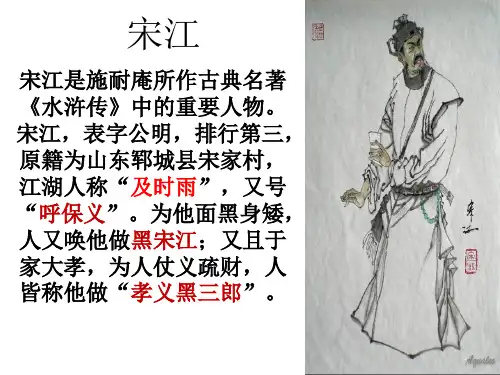 宋江
宋江是施耐庵所作古典名著
《水浒传》中的重要人物。
宋江，表字公明，排行第三，
原籍为山东郓城县宋家村，
江湖人称“及时雨”，又号
“呼保义”。为他面黑身矮，
人又唤他做黑宋江；又且于
家大孝，为人仗义疏财，人
皆称他做“孝义黑三郎”。
宋江